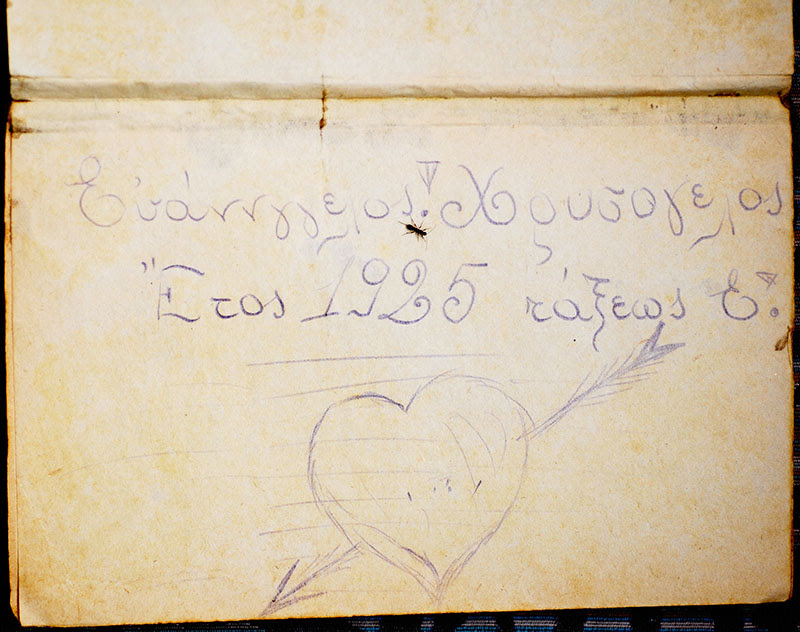 Εὐάννγγελος. Χρυσογελος
Ἔτος 1925 τάξεως Ε.